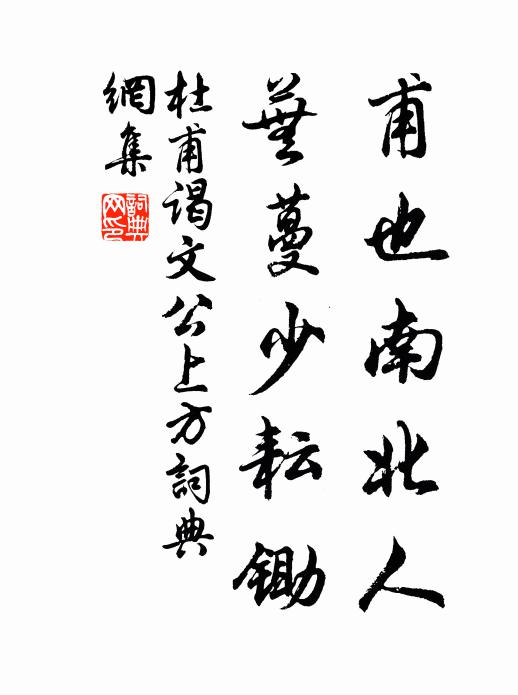 甫也南北人
蕪蔓少耘鋤
杜甫謁文公上方詞典
網集
詞典
网印